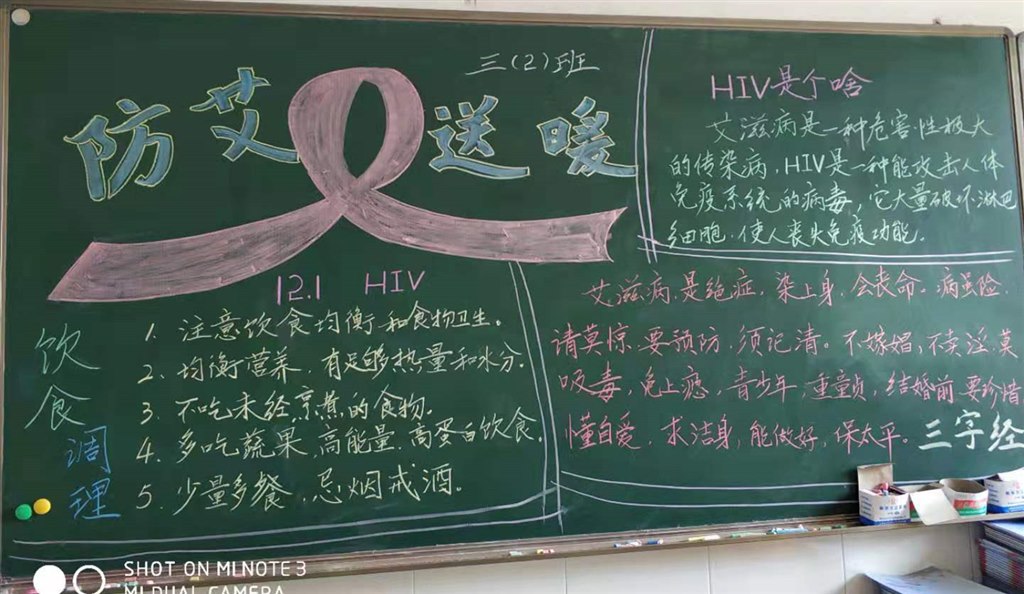 三(2)班
防艾送暖
12.1 HIV
饮食调理
1. 注意饮食均衡和食物卫生。
2. 均衡营养，有足够热量和水分.
3. 不吃未经烹煮的食物.
4. 多吃蔬果，高能量，高蛋白饮食。
5. 少量多餐，忌烟戒酒。
HIV是个啥
艾滋病是一种危害性极大
的传染病，HIV是一种能攻击人体
免疫系统的病毒，它大量破坏淋巴
细胞，使人丧失免疫功能.
艾滋病，是绝症，染上身，会丧命。病虽险，
请莫惊，要预防，须记清。不嫖娼，不卖淫，莫
吸毒，免上瘾，青少年，重童贞，结婚前，要珍惜
懂自爱，求洁身，能做好，保太平。
三字经
SHOT ON MI NOTE 3
MI DUAL CAMERA